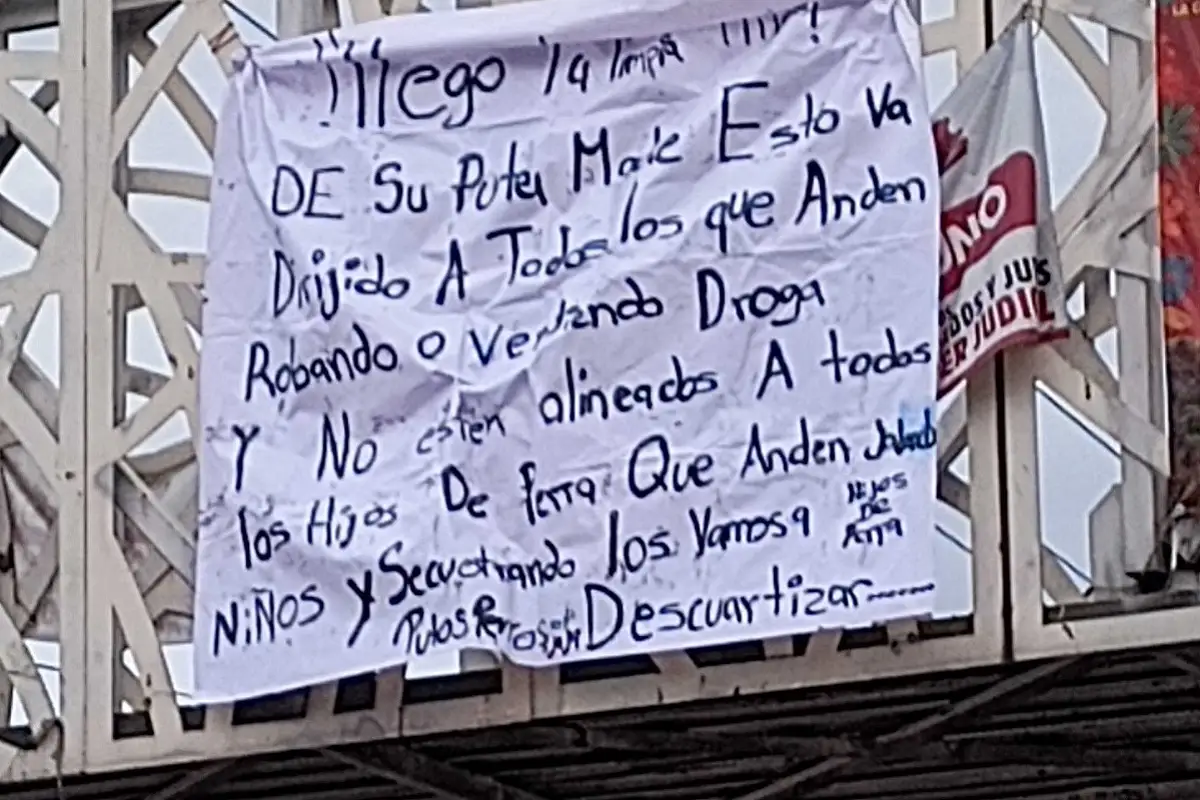 ¡¡¡llego la limpia !!!!!
DE Su Puta Madre Esto Va
Dirijido A Todos los que Anden
Robando o Vendiendo Droga
Y No esten alineados A todos
los Hijos De Perra Que Anden
NiÑOS y Secuestrando los Vamos a
HIJOS
DE
Perra
Putos Perros Descuartizar
UNO
DOS Y JU
ER JUDI
LA